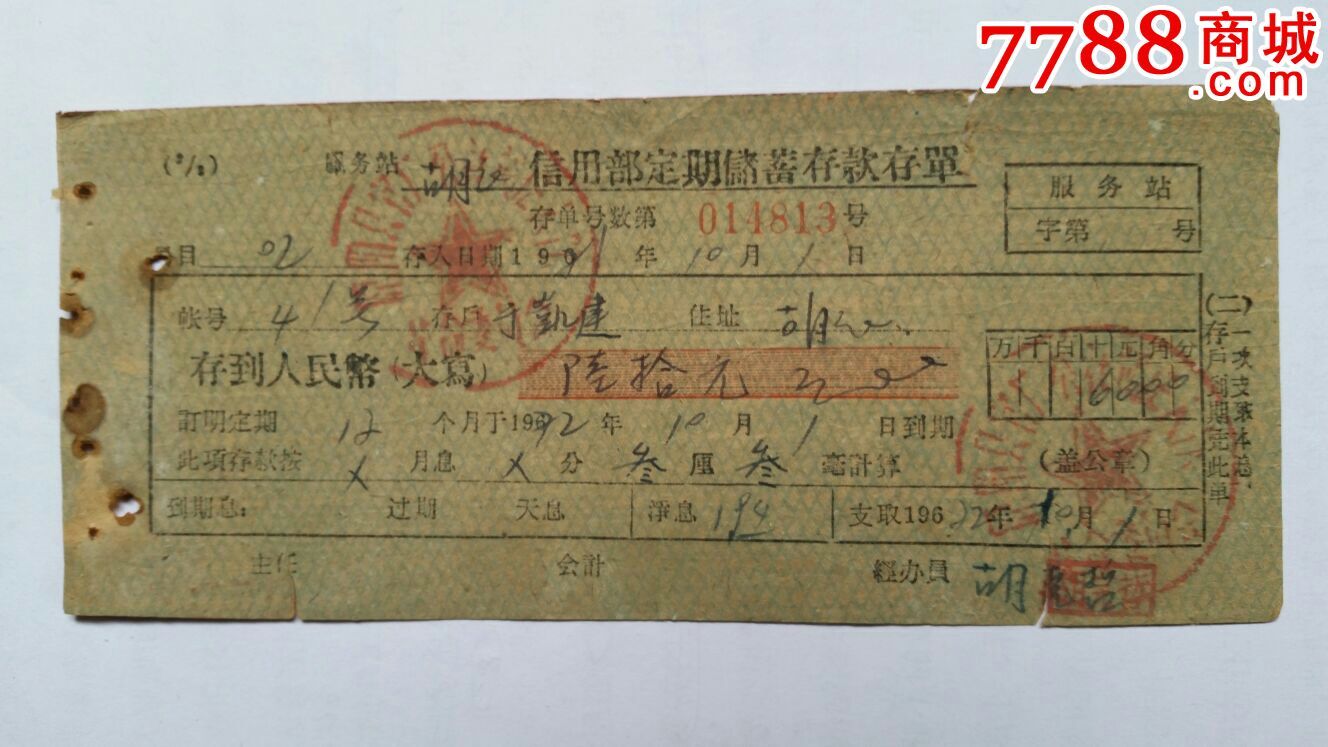 7788商城
.com
服务站 信用部定期儲蓄存款存單
存单号数第 014813号
服务站
字第 号
目 02 存入日期19 年10月1日
帐号 41号 存户 于凱建 住址
存到人民幣(大寫) 陸拾元
万千百十元角分
6000
訂明定期 12 个月于196 年10月1日到期
此项存款按 月息 分叁厘叁毫計算
(盖公章)
到期息: 过期 天息 淨息 194 支取196 年10月1日
主任 会計 經办員
(二)存户到期凭此单
一次支取本息、